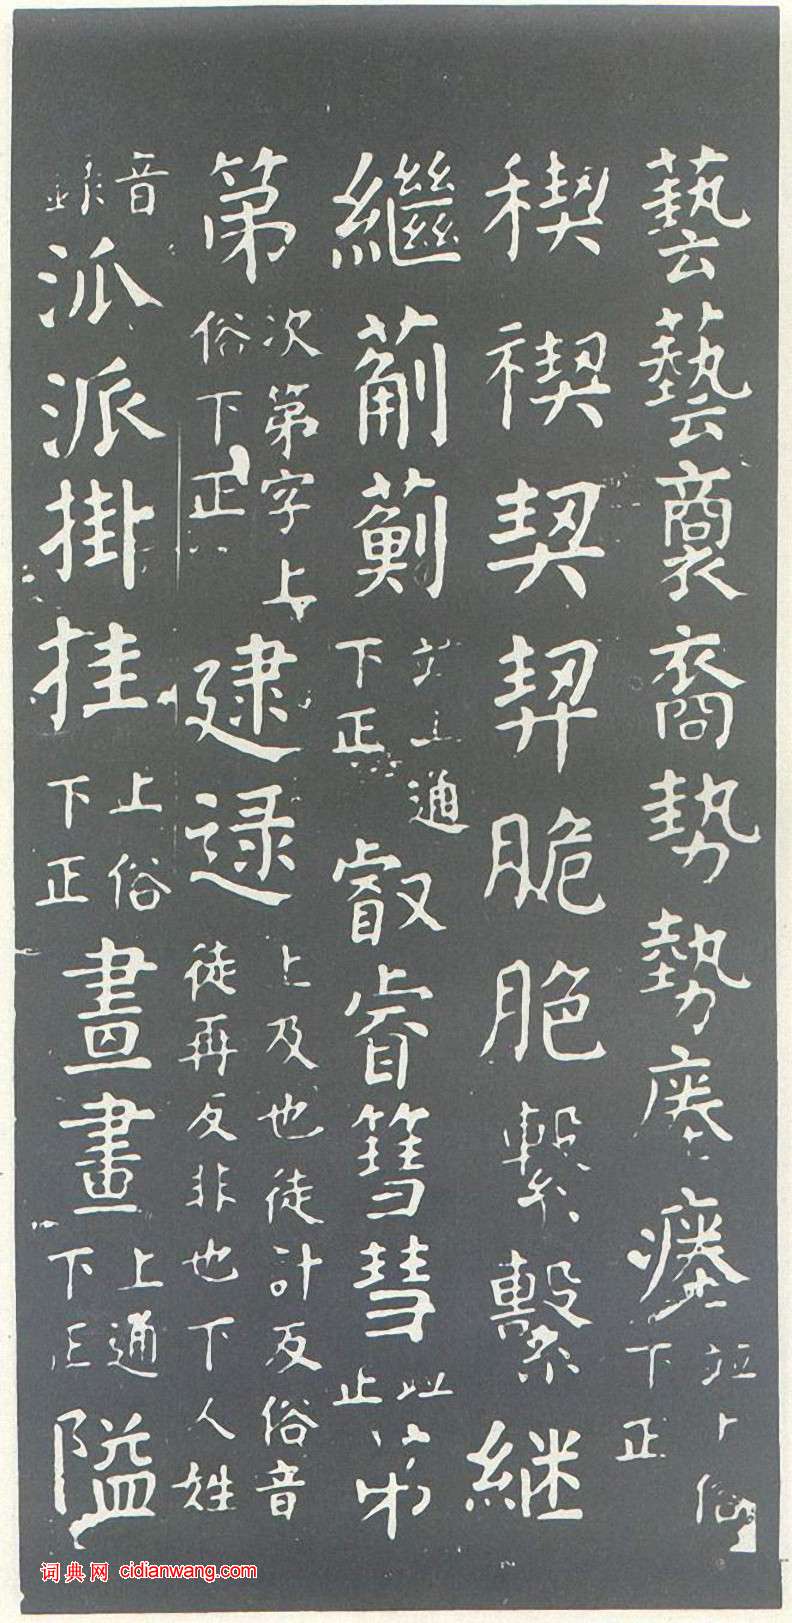 藝藝裔勢勢瘞瘞並上俗下正
稧禊契脆脃繋繫継
繼葪薊並上通下正叡睿篲彗並正苐
第次第字上俗下正逮逯上及也徒計反俗音徒再反非也下人姓
音錄泒派掛挂上俗下正畫畫上通下正隘
词典网 cidianwang.com